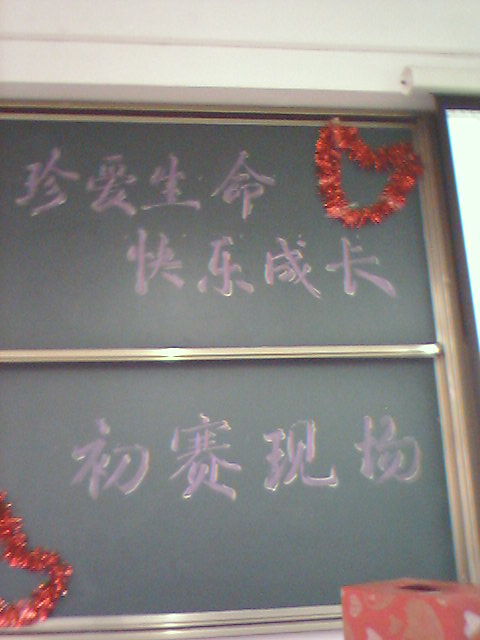 珍爱生命
快乐成长
初赛现场